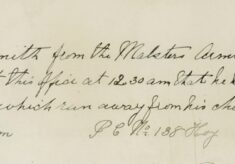 mith from the Malsters Arms
t this office at 12.30 am that he h
which run away from his
m P.C. No. 138 Hoy